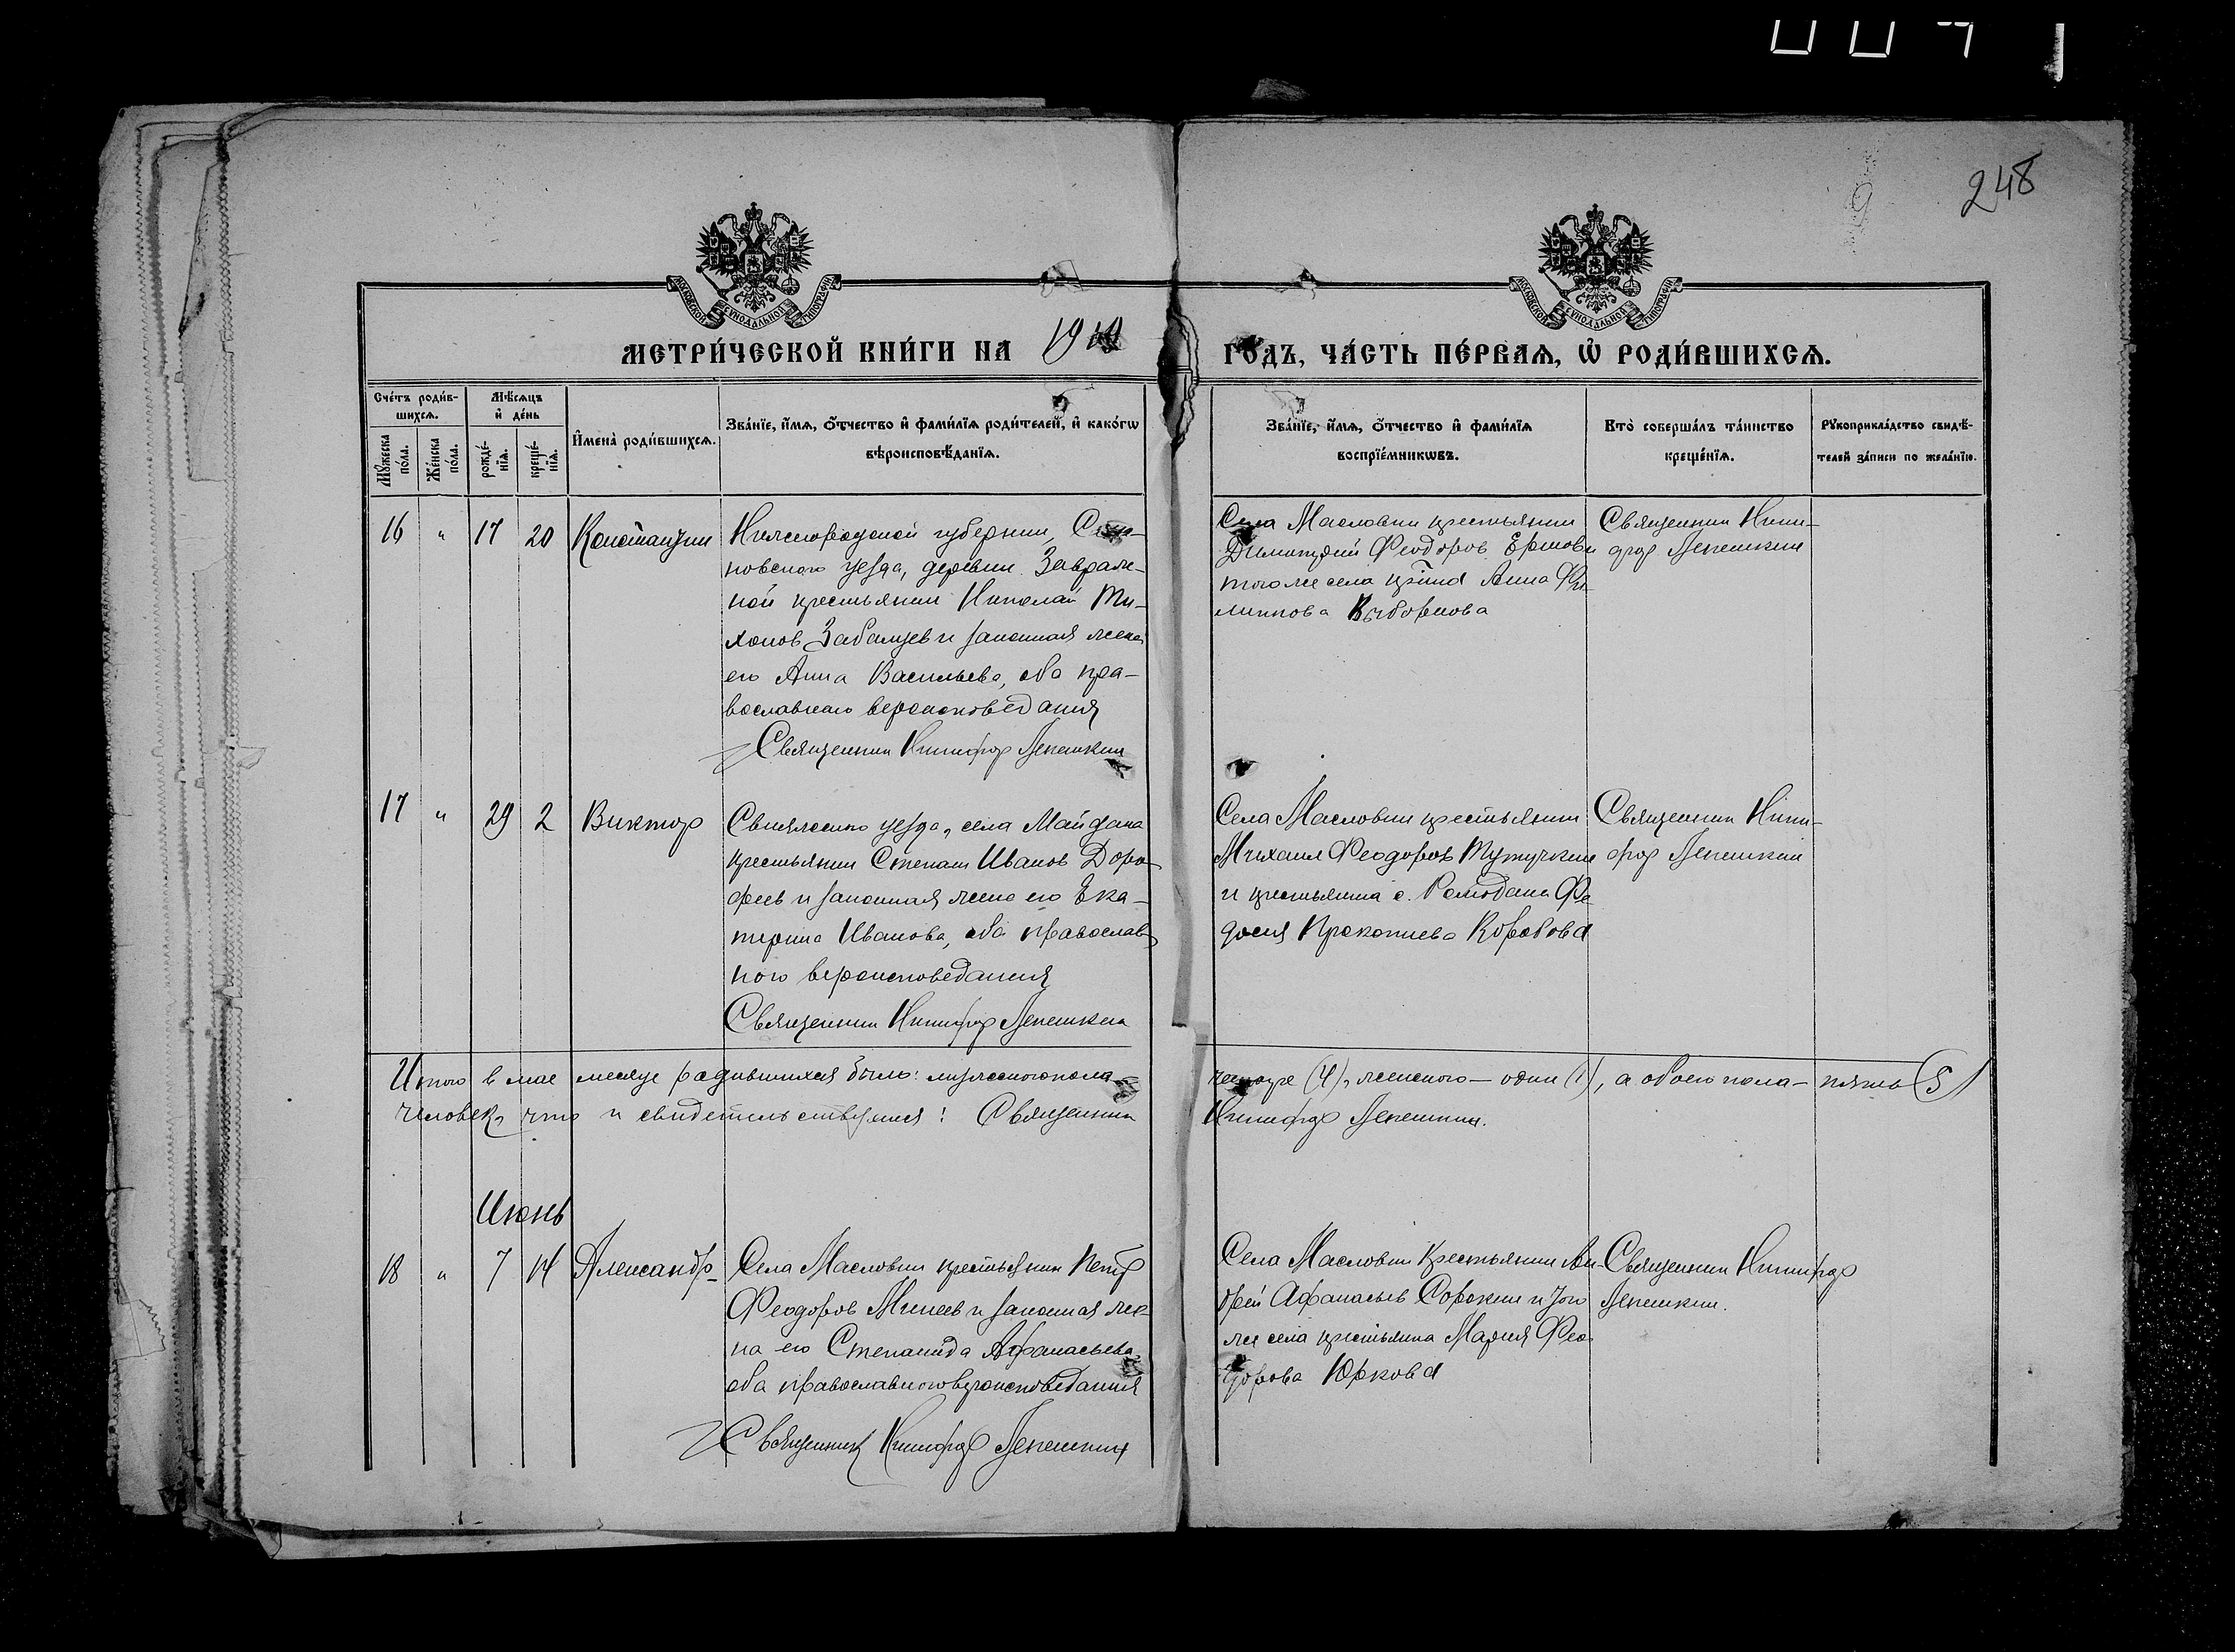 248
МЕТРИ́ЧЕСКОЙ КНИ́ГИ НА 1919 ГО́ДЪ, ЧА́СТЬ ПЕ́РВАѦ, Ѡ҆ РОДИ́ВШИХСѦ.
Сче́тъ роди́в-
шихсѧ.
Мꙋ́жеска
по́ла.
Же́нска
по́ла.
Мѣ́сѧцъ
и҆ де́нь
рожде́-
нїѧ.
креще́-
нїѧ.
И҆мена̀ роди́вшихсѧ.
Зва́нїе, и҆́мѧ, ѻ҆́тчество и҆ фами́лїѧ роди́телей, и҆ како́гѡ
вѣроисповѣ́данїѧ.
Зва́нїе, и҆́мѧ, ѻ҆́тчество и҆ фами́лїѧ
воспрїе́мникѡвъ.
Кто̀ соверша́лъ та́инство
креще́нїѧ.
Рꙋкоприкла́дство свидѣ́-
телей за́писи по жела́нїю.
16 " 17 20 Константин
Нижегородской губернии,
повского уезда, деревни
ной крестьянин Николай Ти-
хонов Забалуев и законная жена
его Анна Васильева, оба пра-
вославного вероисповедания
Священник Никифор Лепешкин
Села Масловки крестьянин
Димитрий Феодоров Ершов и
того же села Анна Фи-
липпова Выборнова
Священник Ники-
фор Лепешкин
17 " 29 2 Виктор
Свияжского уезда, села Майдана
крестьянин Степан Иванов Доро-
феев и законная жена его Ека-
терина Иванова, оба православ-
ного вероисповедания
Священник Никифор Лепешкин
Села Масловки крестьянин
Михаил Феодоров
и крестьянка с. Ромодана Фе-
досия Прокопиева Коробова
Священник Ники-
фор Лепешкин
Итого в мае месяце родившихся было: мужского пола – четыре (4), женского – один (1), а обоего пола – пять (5)
человек, что и свидетельствуем: Священник Никифор Лепешкин.
Июнь
18 " 7 14 Александр
Села Масловки крестьянин Петр
Феодоров Минеев и законная же-
на его Степанида Афанасьева,
оба православного вероисповедания
Священник Никифор Лепешкин
Села Масловки крестьянин Ан-
дрей Афанасьев Сорокин и того
же села крестьянка Мария Фео-
дорова Юркова
Священник Никифор
Лепешкин.